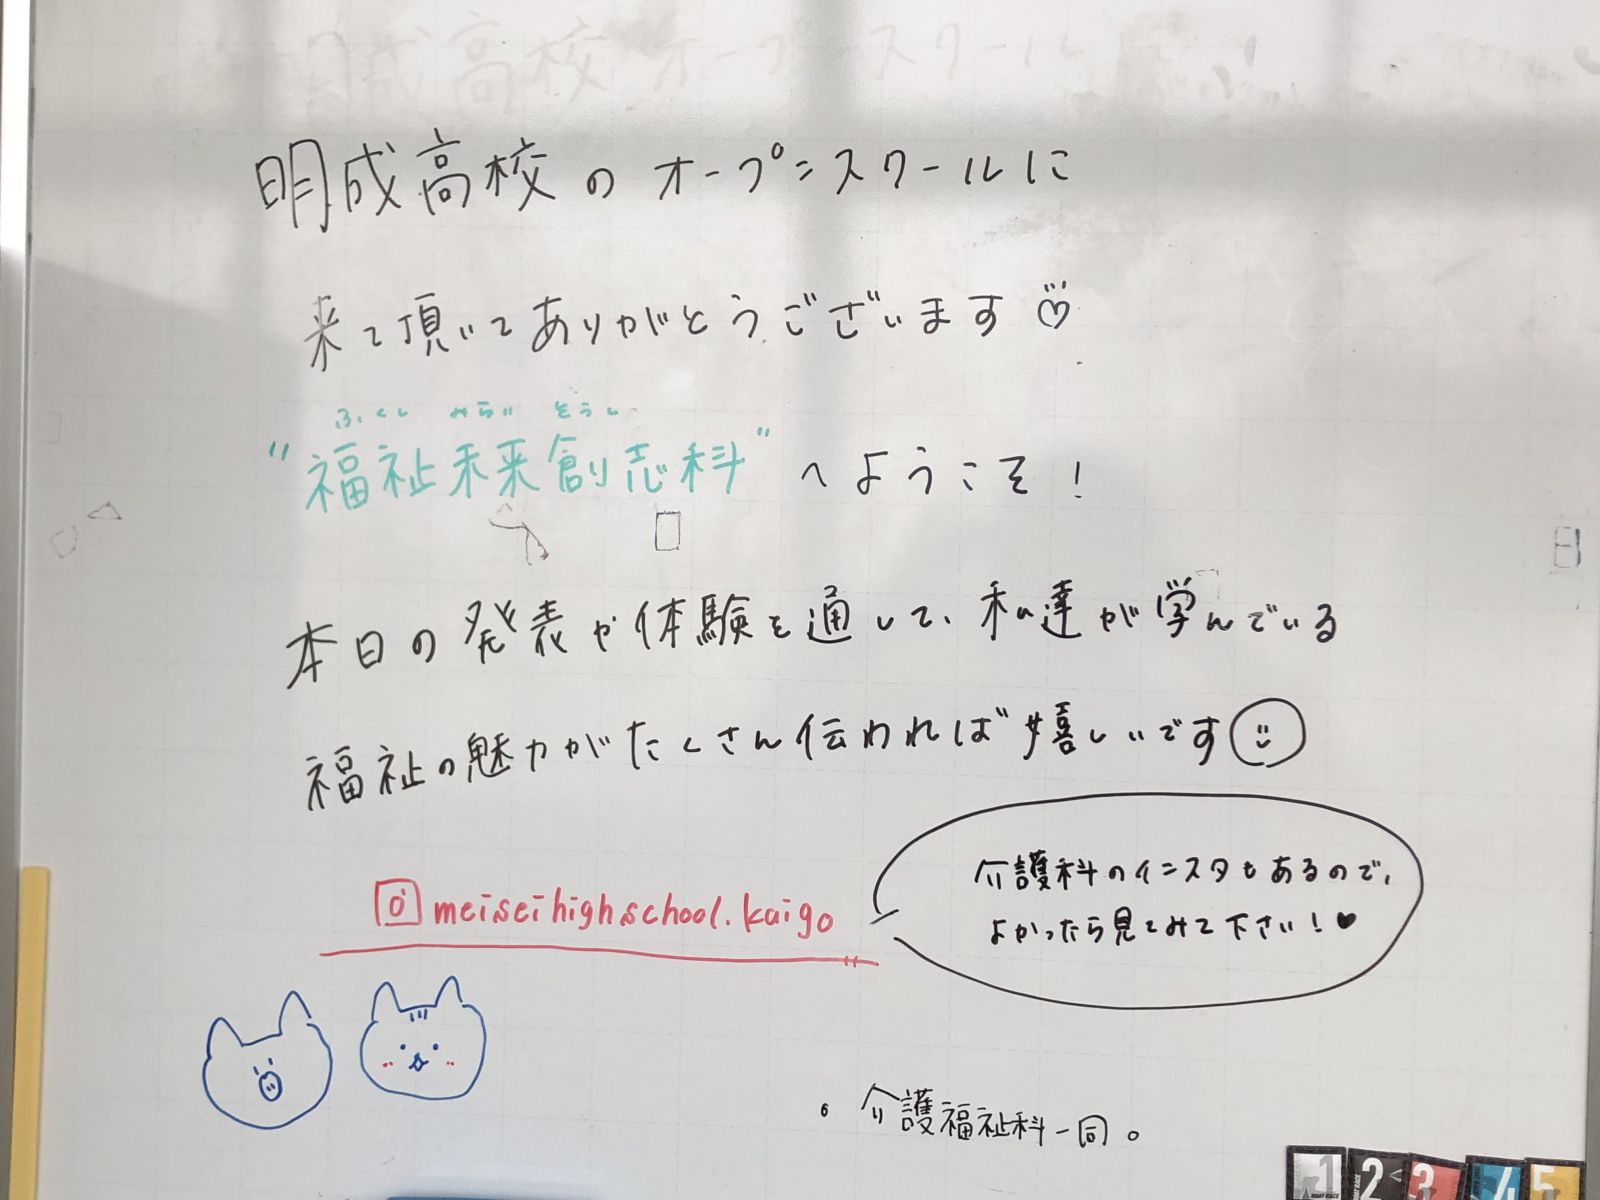 明成高校のオープンスクールに
来て頂いてありがとうございます♡
ふくし みらい そうし
"福祉未来創志科"へようこそ！
本日の発表や体験を通して、私達が学んでいる
福祉の魅力がたくさん伝われば嬉しいです
meiseihighschool.kaigo
介護科のインスタもあるので、
よかったら見てみて下さい！♥
介護福祉科一同。
1 2 3 4 5